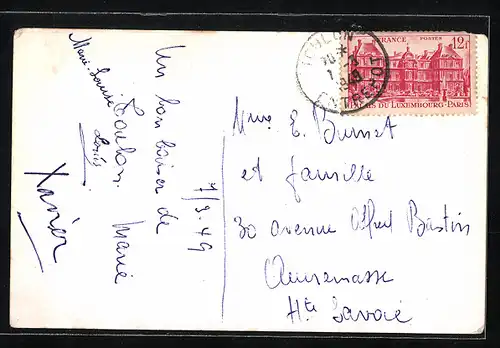 Un bon baiser de
Toulon.
Marie
Marie-Louise
Xavier
7/3.49
TOULON
FRANCE POSTES 12f
PALAIS DU LUXEMBOURG-PARIS
Mme E. Burnet
et famille
30 avenue Alfred Bastin
Annemasse
Hte Savoie